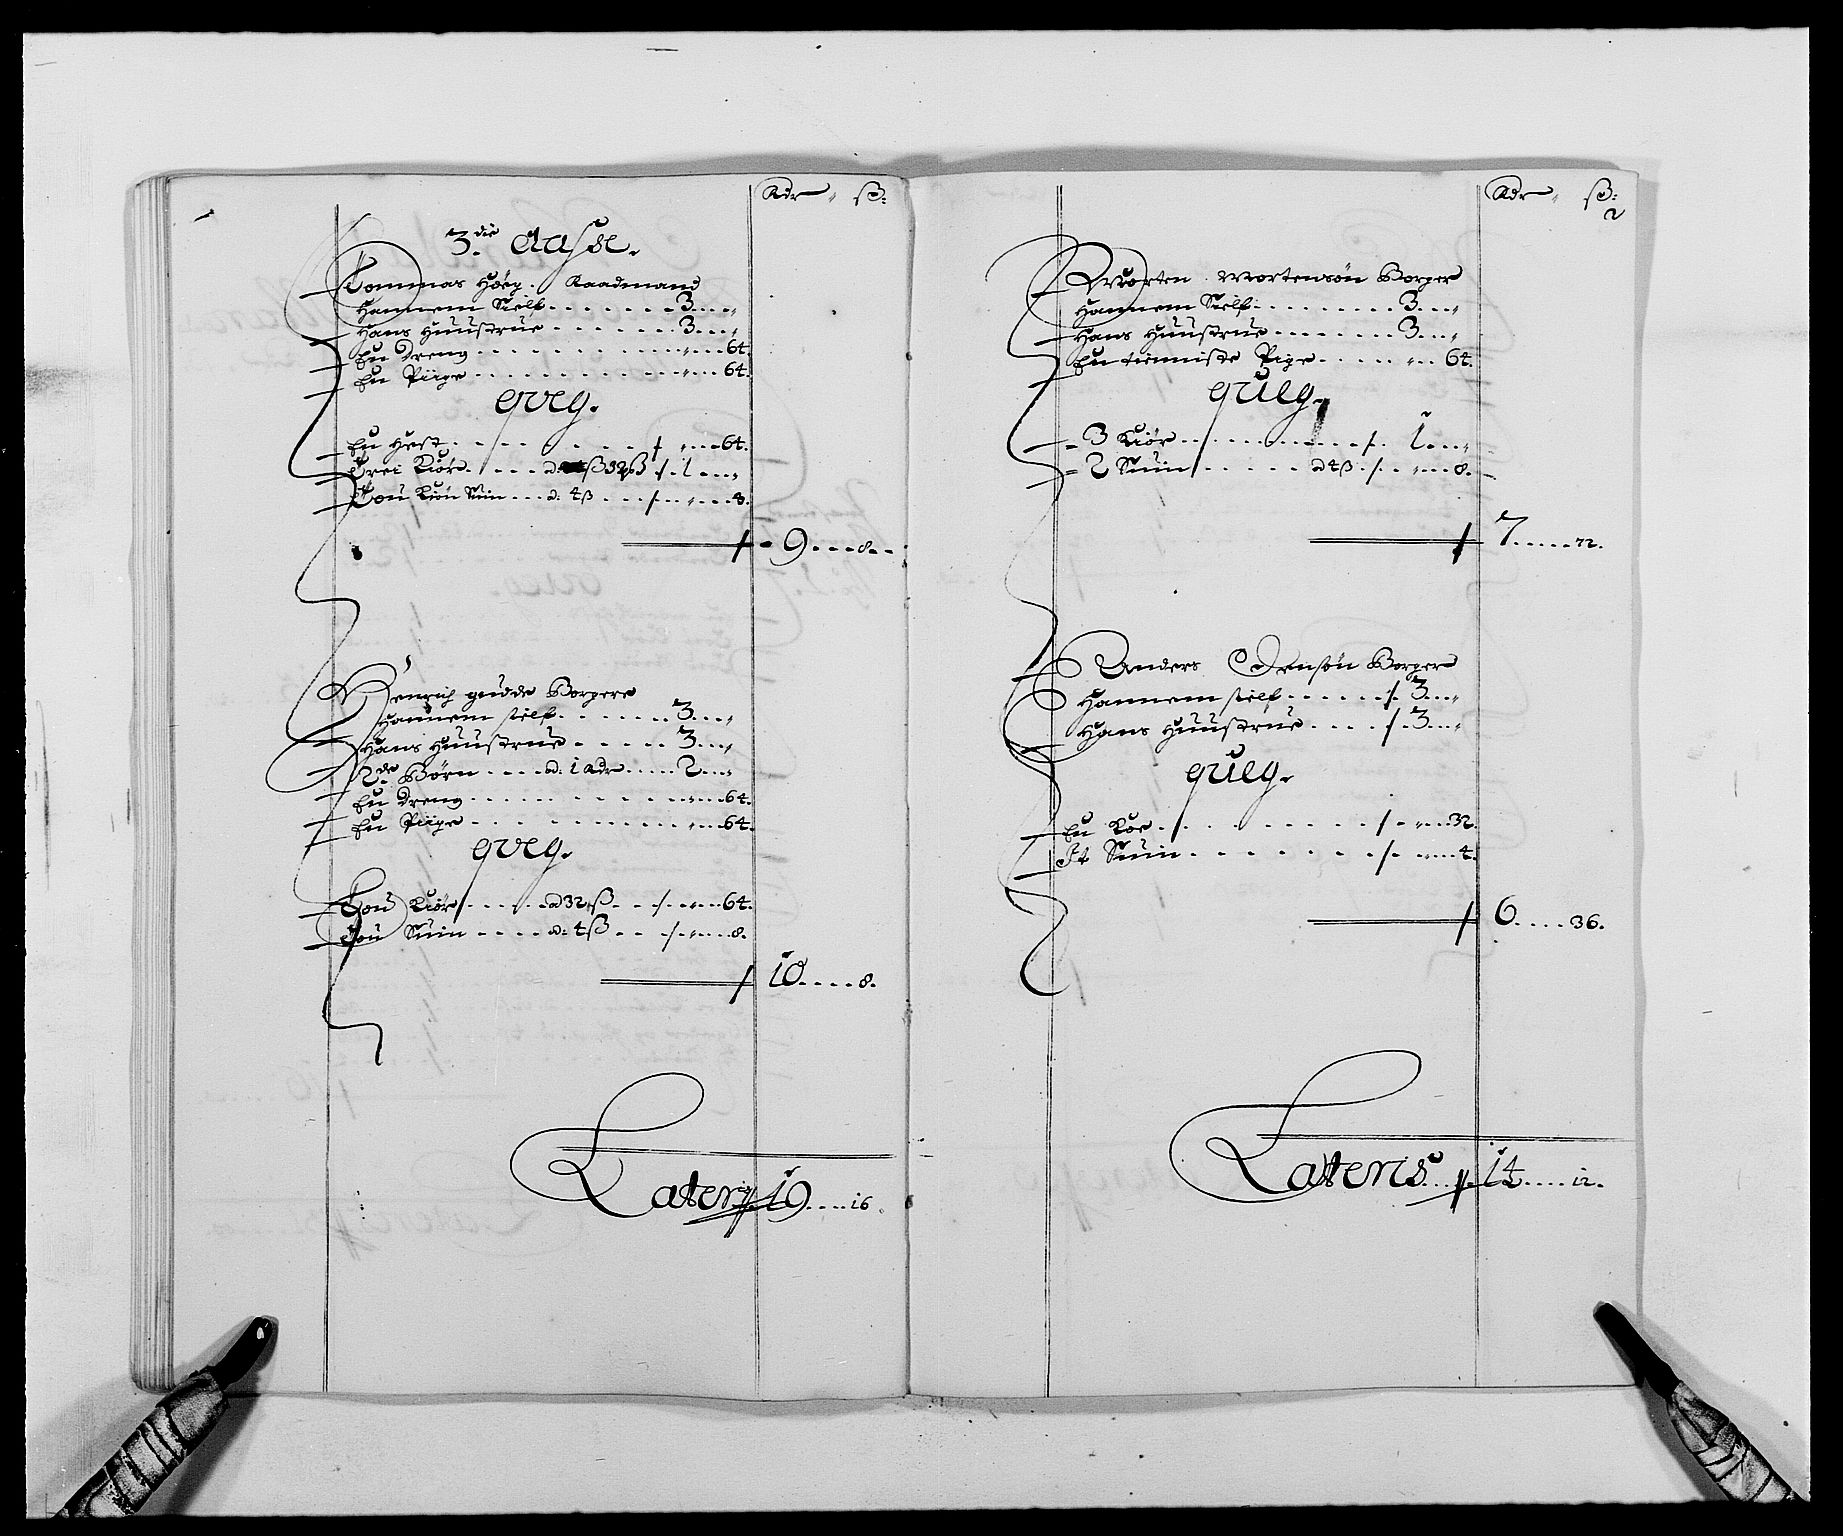 Rdr " ſß:
3.die Classe.
Tommas Høeg. Raadmand
Hannem Sielf . . . . . . . 3 . . . "
Hans Huustrue . . . . . . 3 . . . "
En Dreng . . . . . . . " . . 64.
En Piige . . . . . . . " . . 64.
qveg.
En Hest . . . . . . . " . . 64.
Trei Kiør . . . . à 32ß . 1 . . . "
Tou Suin . . . à: 4ß . . . " . . 8.
9 . . . 8 . .
Henrich gudde Borgere
Hannem sielf . . . . . . 3 . . . "
Hans Huustrue . . . . . 3 . . . "
2de Børn . . . . à: 1 Rdr . . . . 2 . . . "
En Dreng . . . . . . . " . . 64.
En Piige . . . . . . . " . . 64.
qveg.
Tou Kiør . . . . . à 32ß . . . " . . 64.
Tou Suin . . . . à: 4ß . . . " . . 8.
10 . . . . 8.
Lateris 19 . . . . 16.
Rdr " ſß:
2
Morten Mortensøn Borger
Hannem Sielf . . . . . . . . 3 . . . "
Hans Huustrue . . . . . . . 3 . . . "
En tienniste Pige . . . . . " . . 64.
queg.
3 Kiør . . . . . . . . 1 . . . "
2 Suin . . . . . à 4ß . . " . . . 8.
7 . . . . . 72.
Anders Jensøn Borgere
Hannem sielf . . . . . . 3 . . . "
Hans Huustrue . . . . . 3 . . . "
queg.
En Koe . . . . . . . " . . . 32.
It Suin . . . . . . . " . . . 4.
6 . . . . 36.
Lateris . . 14 . . . . . 12.